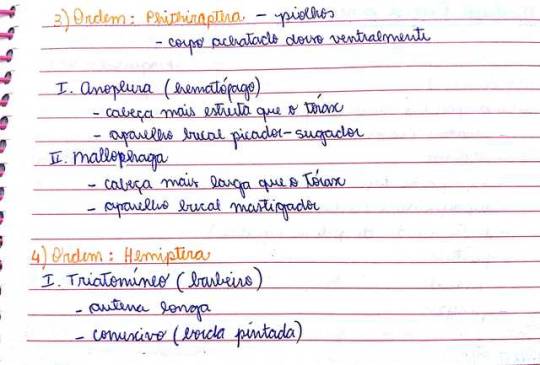 3) Ordem: Phithiraptera - piolhos
- corpo achatado dorso ventralmente
I. Anoplura (hematófago)
- cabeça mais estreita que o tórax
- aparelho bucal picador-sugador
II. Mallophaga
- cabeça mais larga que o tórax
- aparelho bucal mastigador
4) Ordem: Hemiptera
I. Triatomíneo (barbeiro)
- antena longa
- conexivo (borda pintada)